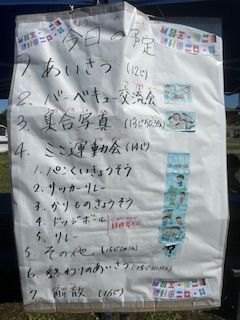 今日の予定
1. あいさつ (12じ)
2. バーベキュー交流会
3. 集合写真 (13じ50ふん)
4. ミニ運動会 (14じ)
1. パンくいきょうそう
2. サッカーリレー
3. かりものきょうそう
4. ドッジボール
5. リレー
5. その他
6. 終わりのあいさつ
7. 解散 (16じ)